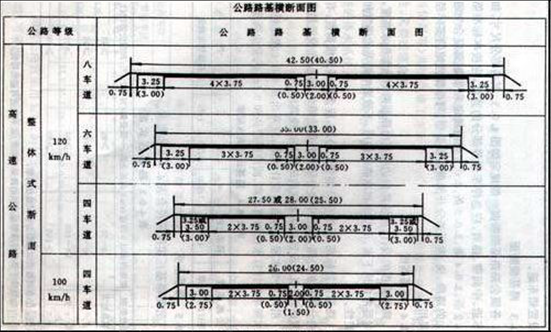 公路路基横断面图
公路等级 公路路基横断面图
高速公路
整体式断面
120
km/h
八车道
42.50(40.50)
3.25 4×3.75 0.75 3.00 0.75 4×3.75 3.25
0.75 (3.00) (0.50) (2.00) (0.50) (3.00) 0.75
六车道
(33.00)
3.25 3×3.75 0.75 3.00 0.75 3×3.75 3.25
0.75 (3.00) (0.50) (2.00) (0.50) (3.00) 0.75
四车道
27.50或28.00(25.50)
3.25或 3.25或
3.50 2×3.75 0.75 3.00 0.75 2×3.75 3.50
0.75 (3.00) (0.50) (2.00) (0.50) (3.00) 0.75
100
km/h
四车道
26.00(24.50)
3.00 2×3.75 0.75 2.00 0.75 2×3.75 3.00
0.75 (2.75) (0.50) (0.50) (2.75) 0.75
(1.50)